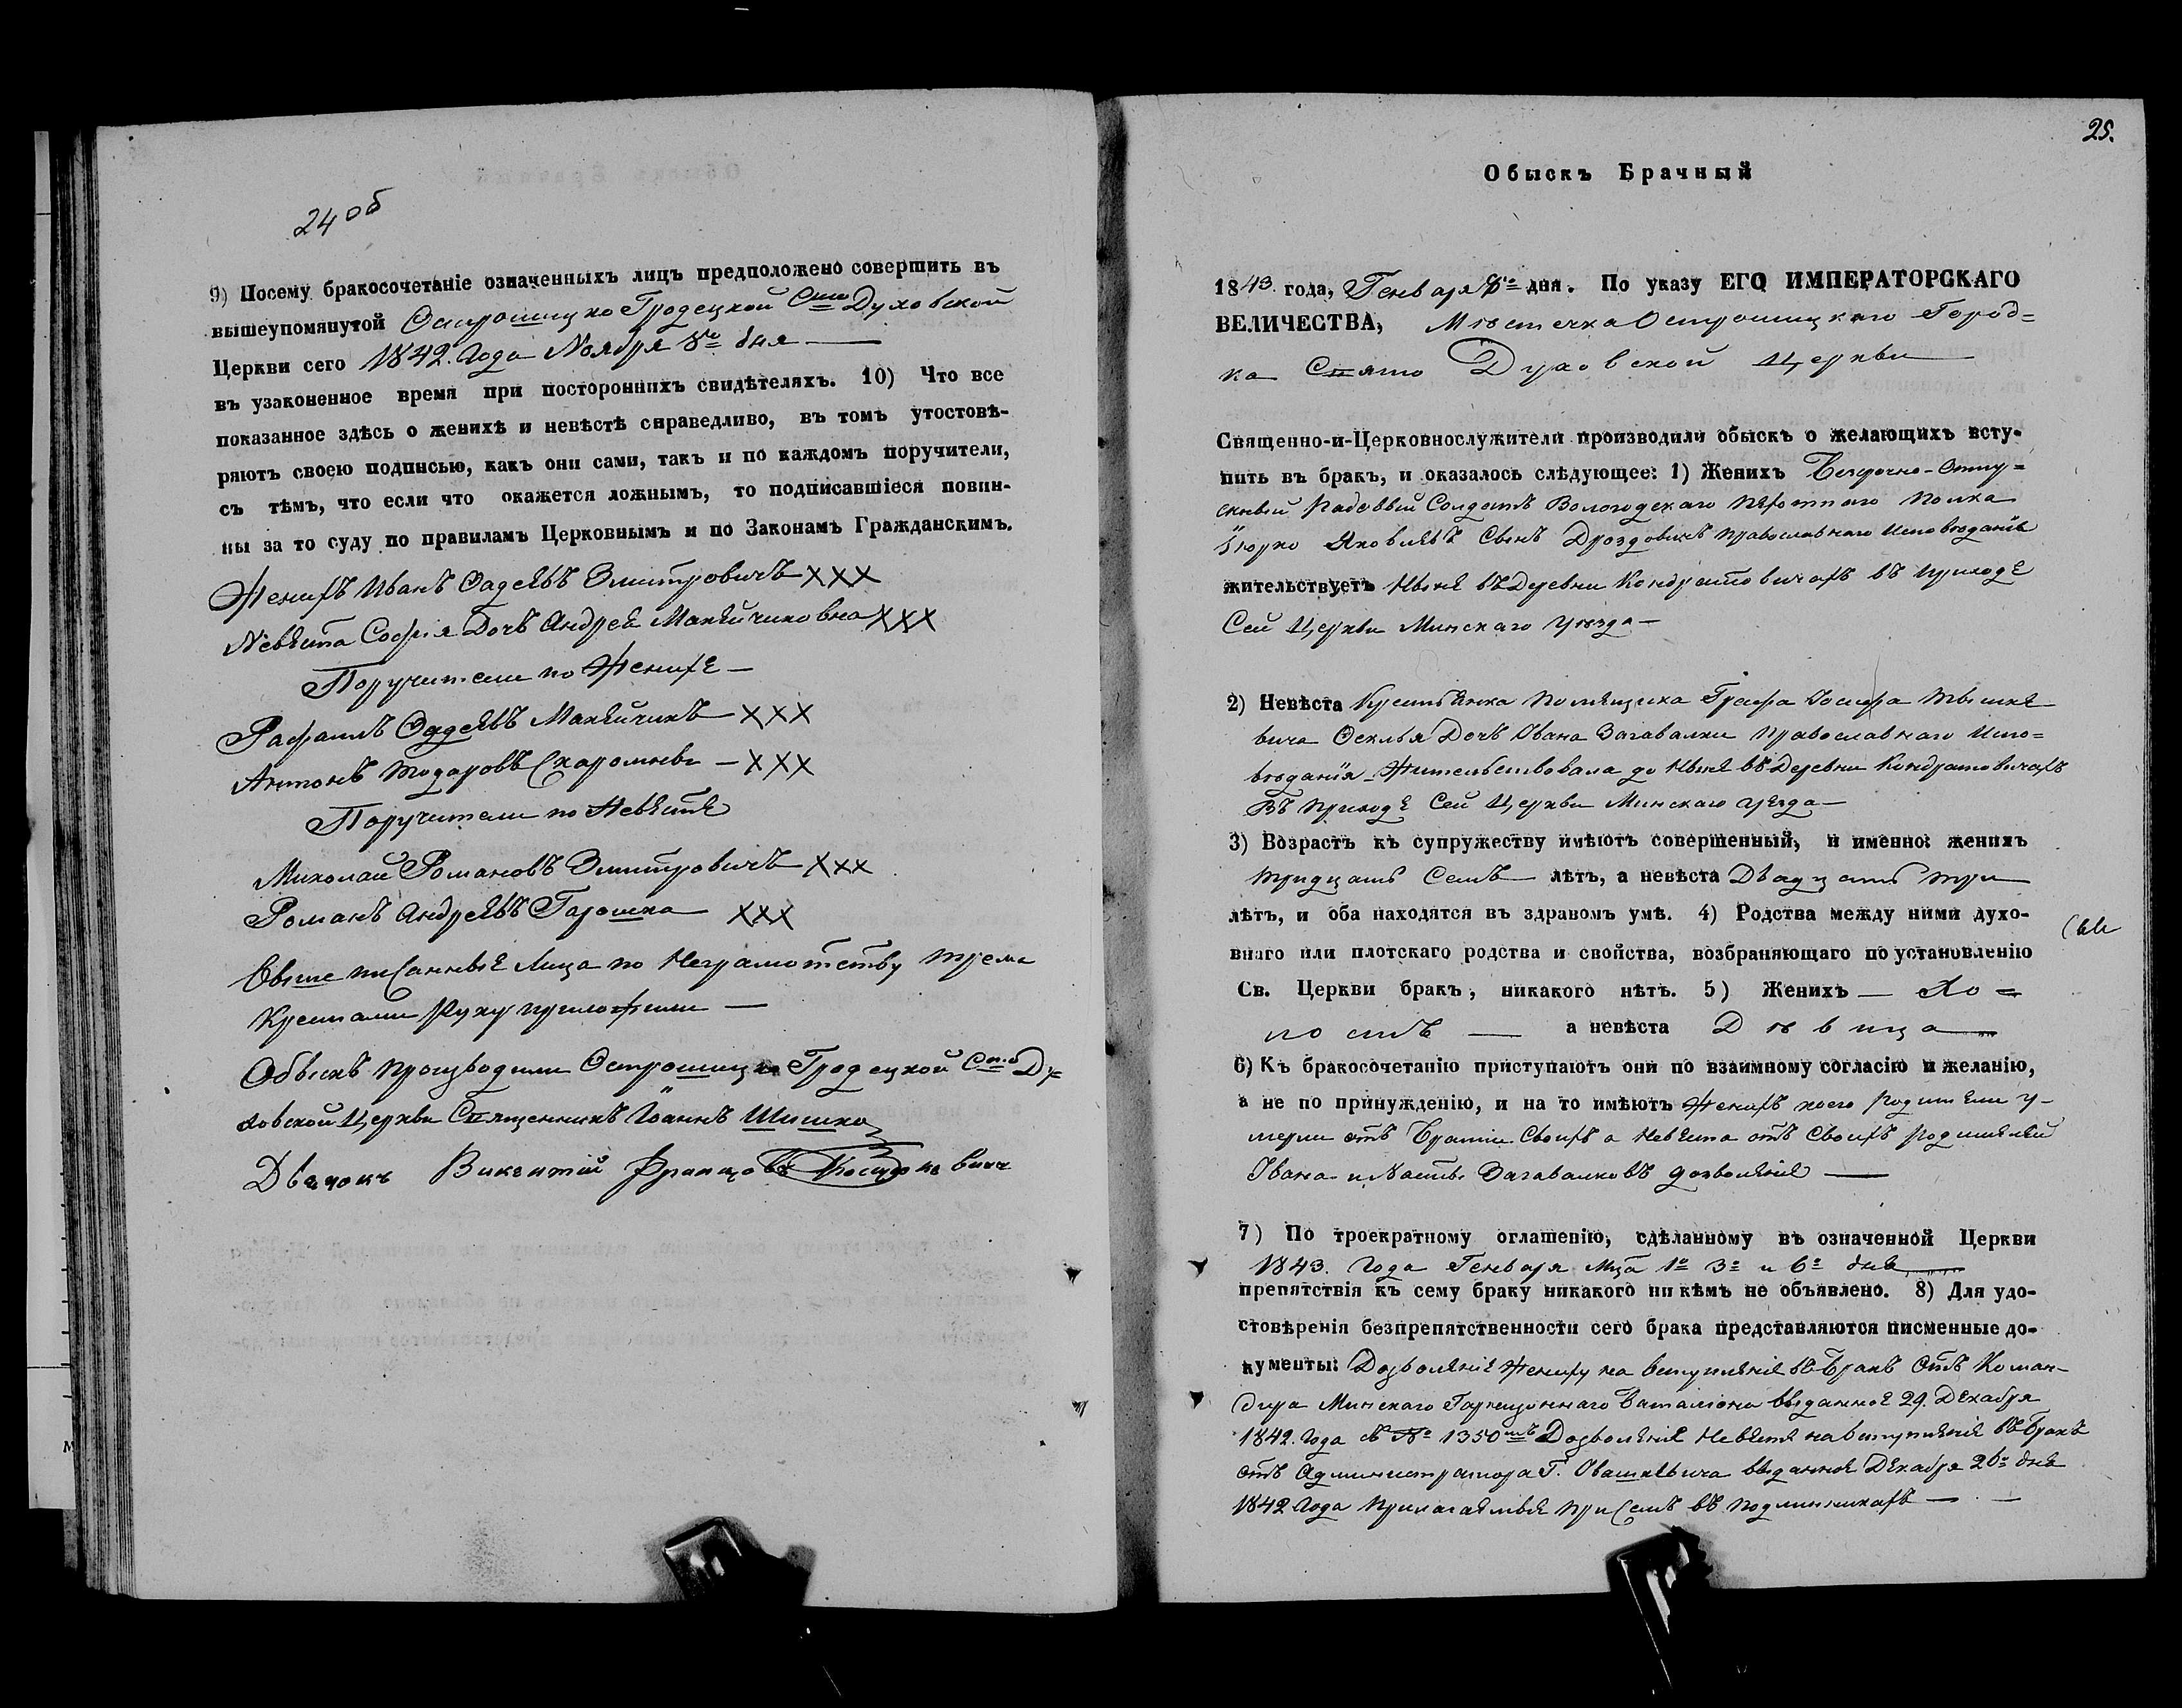 24 об
9) Посему бракосочетаніе означенныхъ лицъ предположено совершить въ
вышеупомянутой Острошицко Гродецкой Сто Духовской
Церкви сего 1842. Года Ноября 8го дня —
въ узаконенное время при постороннихъ свидѣтеляхъ. 10) Что все
показанное здѣсь о женихѣ и невѣстѣ справедливо, въ томъ утостовѣ-
ряютъ своею подписью, какъ они сами, такъ и по каждомъ поручители,
съ тѣмъ, что если что окажется ложнымъ, то подписавшіеся повин-
ны за то суду по правиламъ Церковнымъ и по Законамъ Гражданскимъ.
Женихъ Иванъ Фадеевъ Змитровичъ ххх
Невеста Софія Дочь Андрея Макейчиковна ххх
Поручители по Женихе —
Рафаилъ Фадеевъ Макейчикъ — ххх
Антонъ Тодаровъ — ххх
Поручители по Невесте
Михолай Романовъ Змитровичъ ххх
Романъ Андреевъ Гарошка ххх
Свыше писанные Лица по Неграмотству трема
Крестами Руку приложили —
Обыскъ производили Острошицко Гродецкой Сто Ду=
ховской Церкви Священникъ Іоаннъ Шишко
Дьячокъ Викентій Францовъ
25.
Обыскъ Брачный
1843. года, Генваря 8го дня. По указу ЕГО ИМПЕРАТОРСКАГО
ВЕЛИЧЕСТВА, Местечка Острошицкаго Город=
ка Свято Духовской Церкви
Священно-и-Церковнослужители производили обыскъ о желающихъ всту-
пить въ бракъ, и оказалось слѣдующее: 1) Женихъ Безсрочно-Отпу=
скный Рядовый Солдатъ Вологодскаго Пехотнаго Полка
Юрко Яковлевъ Сынъ Дроздовикъ православнаго Исповѣданія
жительствуетъ Ныне въ Деревни Кондратовичахъ въ приходе
Сей Церкви Минскаго уезда —
2) Невѣста Крестьянка Помещика Графа Іосифа Тышке
вича Феклья Дочъ Ивана Загавалки Православнаго Испо=
вѣданія Жительствовала до Ныне въ Деревни Кондратовичахъ
Въ приходе Сей Церкви Минскаго уезда —
3) Возрастъ къ супружеству имѣютъ совершенный, и именно: женихъ
тридцать Семъ лѣтъ, а невѣста Двадцать три
лѣтъ, и оба находятся въ здравомъ умѣ. 4) Родства между ними духо-
внаго или плотскаго родства и свойства, возбраняющаго по установленію
Св. Церкви бракъ, никакого нѣтъ. 5) Женихъ — Хо=
лостъ — а невѣста Дѣвица
6) Къ бракосочетанію приступаютъ они по взаимному согласію и желанію,
а не по принужденію, и на то имѣютъ Женихъ коего Родители у-
мерли отъ Братіи Своихъ а Невеста отъ Своихъ родителей
Ивана и Насты Загавалковъ дозволеніе —
7) По троекратному оглашенію, сдѣланному въ означенной Церкви
1843. Года Генваря Мца 1о 3о и 6о дня
препятствія къ сему браку никакого ни кѣмъ не объявлено. 8) Для удо-
стовѣренія безпрепятственности сего брака представляются писменные до-
кументы: Дозволеніе Жениху на вступленіе въ Бракъ Отъ Коман-
дира Минскаго Гарнизоннаго Баталіона выданное 29. Декабря
1842. Года № 1350 Дозволеніе Невесте на вступленіе въ Бракъ
отъ Администратора Г. Ивашкевича выданное Декабря 26о дня
1842 Года прилагаемые при Семъ въ подлинникахъ —